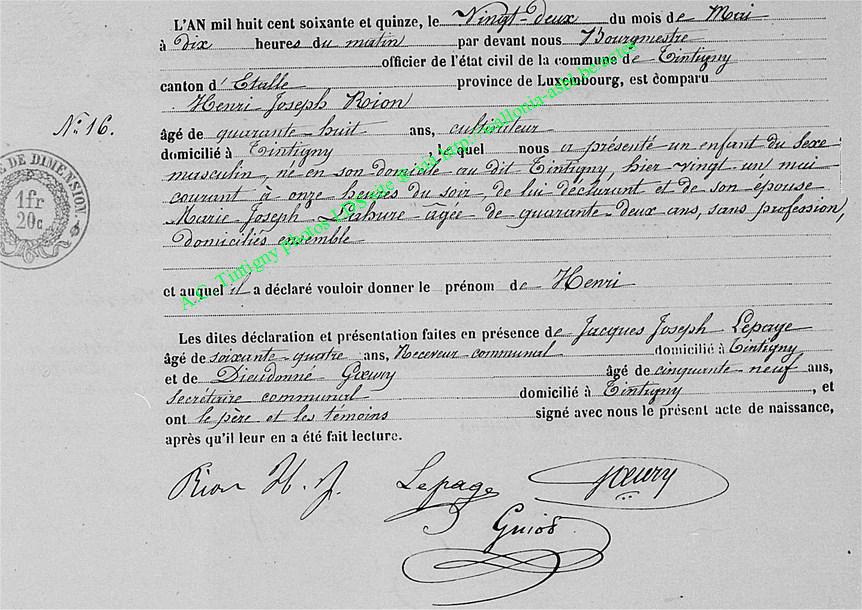 L'AN mil huit cent soixante et quinze, le Vingt-deux du mois de Mai
à dix heures du matin par devant nous Bourgmestre
officier de l'état civil de la commune de Tintigny
canton d'Etalle province de Luxembourg, est comparu
Henri Joseph Rion
N° 16.
âgé de quarante-huit ans, cultivateur
domicilié à Tintigny, lequel nous a présenté un enfant du sexe
masculin, né en son domicile au dit Tintigny, hier vingt-un mai
courant à onze heures du soir, de lui déclarant et de son épouse
Marie Joseph Lahure âgée de quarante-deux ans, sans profession,
domiciliés ensemble
et auquel il a déclaré vouloir donner le prénom de Henri
Les dites déclaration et présentation faites en présence de Jacques Joseph Lepage
âgé de soixante-quatre ans, Receveur communal domicilié à Tintigny
et de Dieudonné Goeury âgé de cinquante neuf ans,
secrétaire communal domicilié à Tintigny, et
ont le père et les témoins signé avec nous le présent acte de naissance,
après qu'il leur en a été fait lecture.
Rion H. J. Lepage Goeury
Guiot
E DE DIMENSION.
1fr
20c
A.C. Tintigny photos LDS site http://wallonia-aspl.be/actes